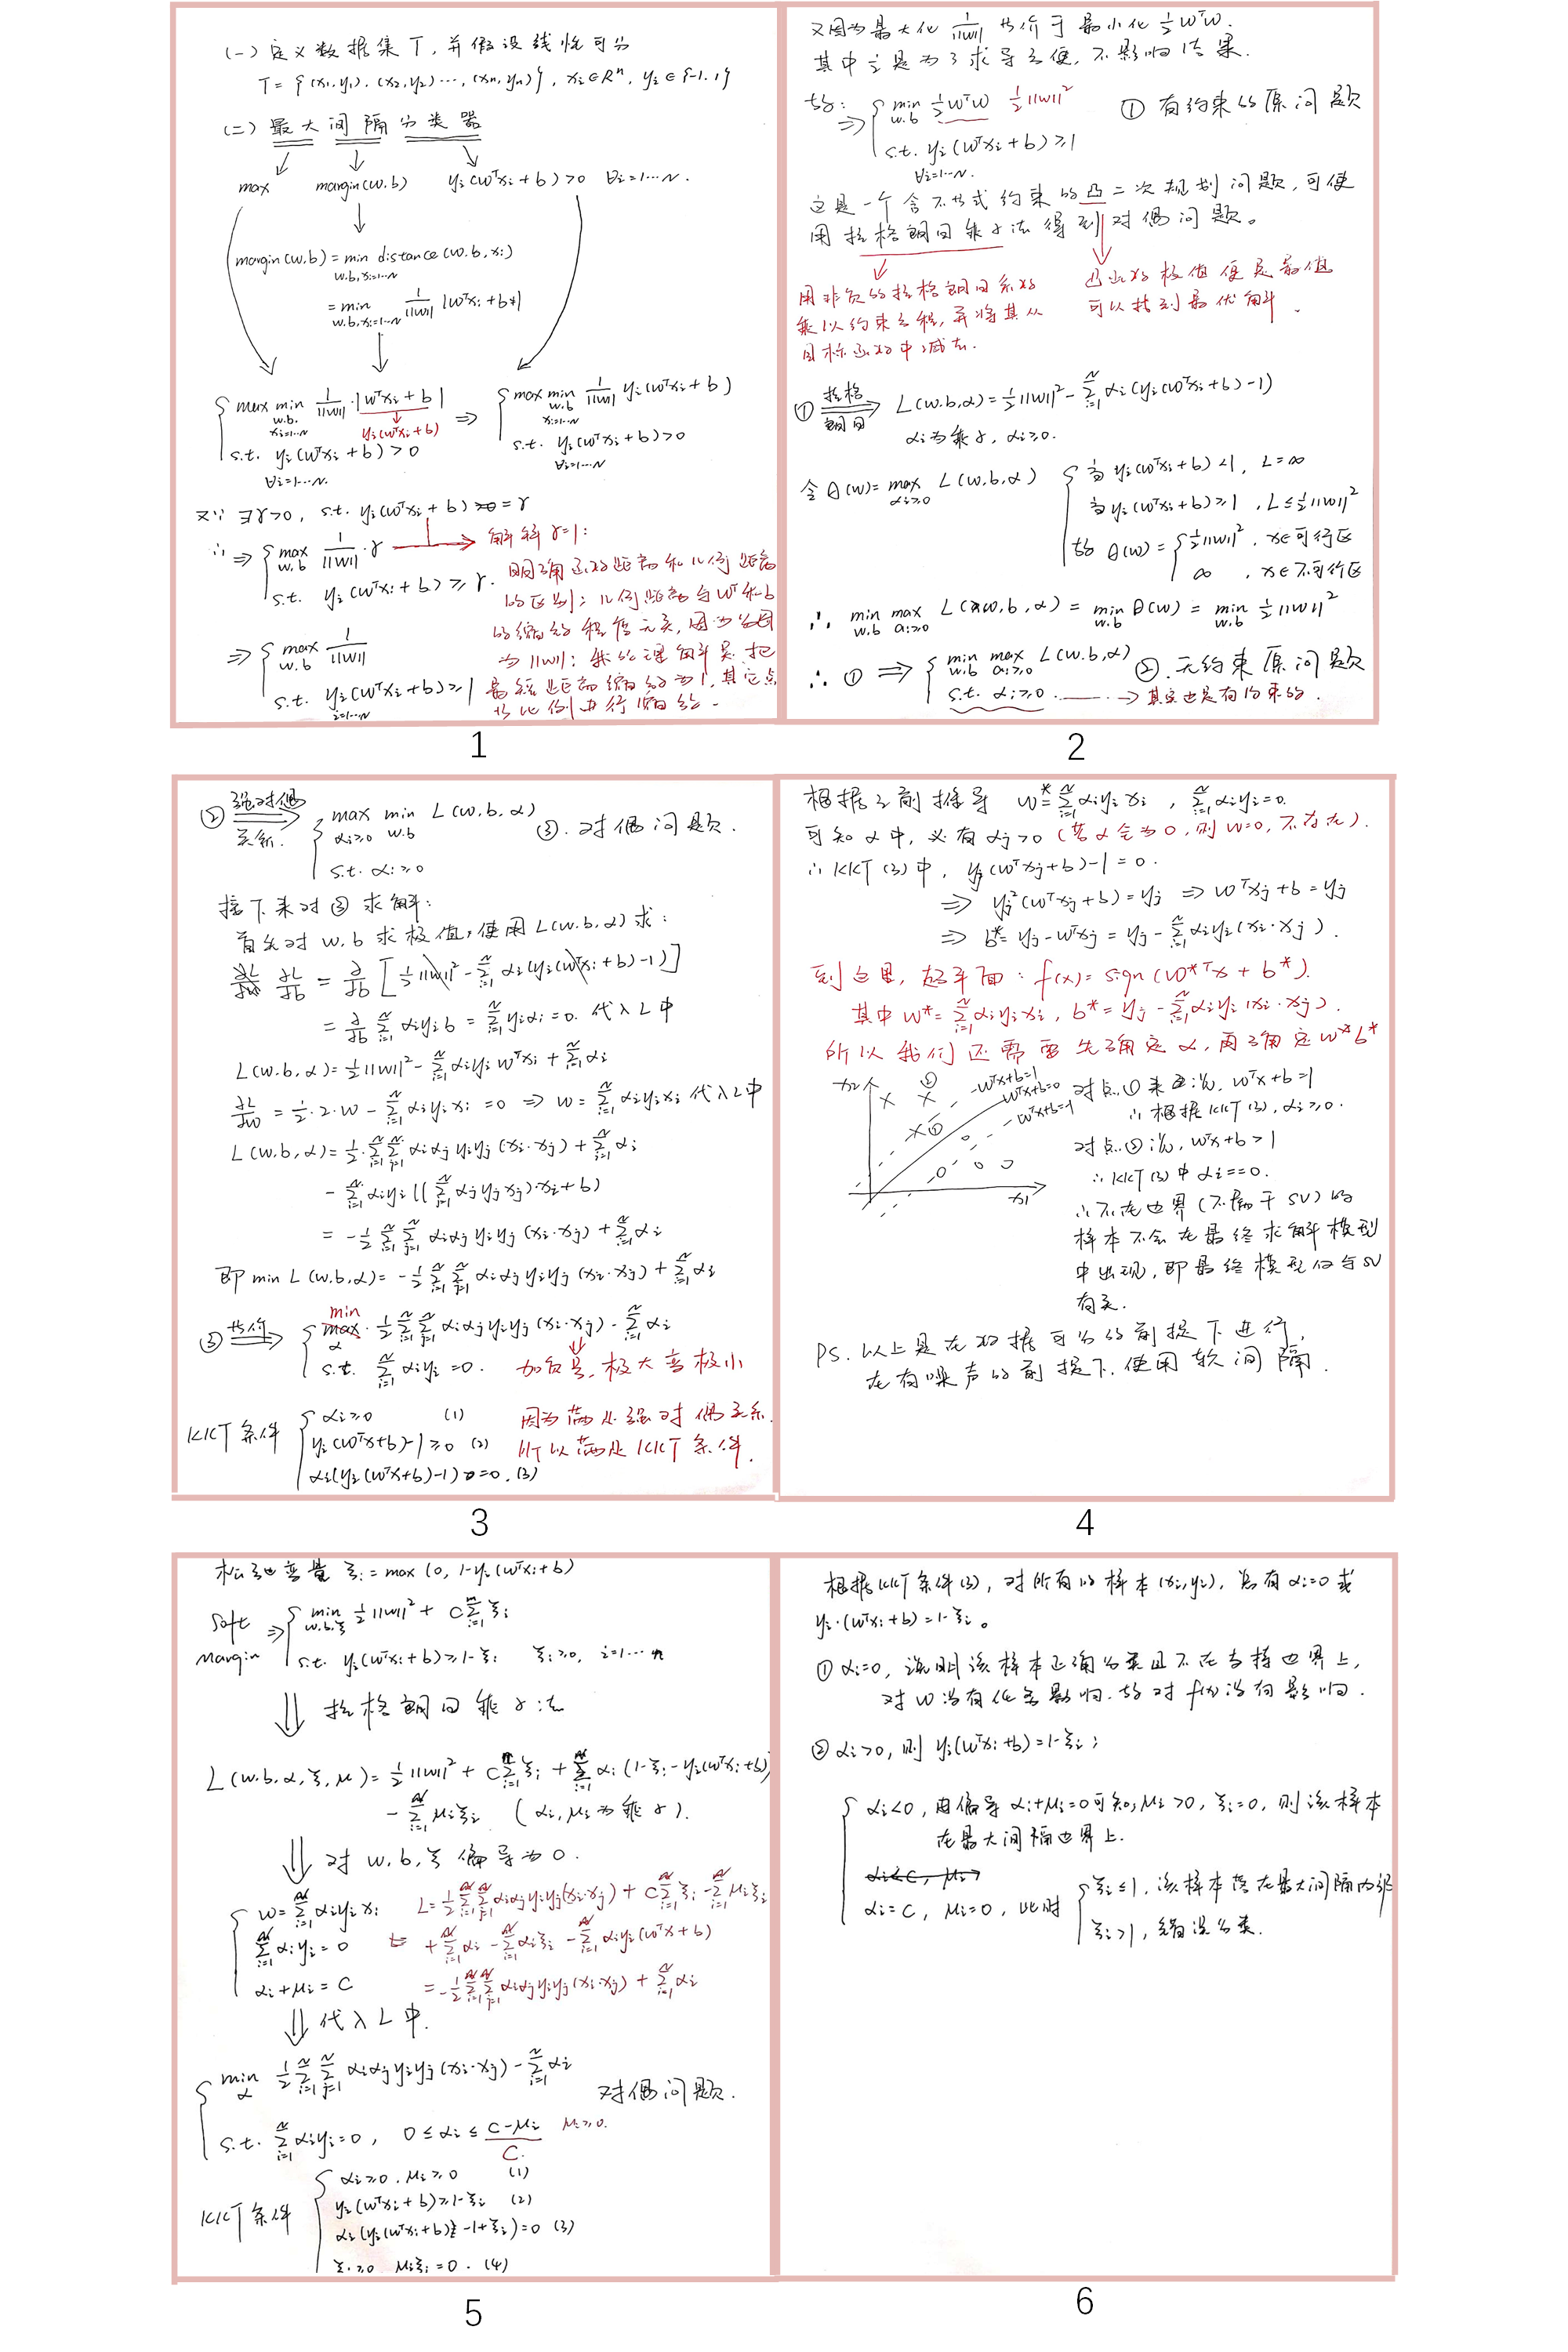 (一) 定义数据集T, 并假设线性可分
T = {(x₁,y₁), (x₂,y₂) ⋯, (xₙ,yₙ)}, xᵢ∈Rⁿ, yᵢ∈{-1,1}
(二) 最大间隔分类器
max margin(w,b) yᵢ(wᵀxᵢ+b)>0 ∀i=1⋯N.
margin(w,b) = min distance(w,b,xᵢ)
w,b,xᵢ=1⋯N
= min 1/||w|| |wᵀxᵢ+b|
w,b,xᵢ=1⋯N
{ max min 1/||w|| · |wᵀxᵢ+b| ⇒ { max min 1/||w|| yᵢ(wᵀxᵢ+b)
w,b. xᵢ=1⋯N yᵢ(wᵀxᵢ+b) w,b xᵢ=1⋯N
s.t. yᵢ(wᵀxᵢ+b)>0 s.t. yᵢ(wᵀxᵢ+b)>0
∀i=1⋯N. ∀i=1⋯N
又∵ ∃γ>0, s.t. yᵢ(wᵀxᵢ+b) = γ
∴ ⇒ { max 1/||w|| · γ → 解释γ=1:
w,b
s.t. yᵢ(wᵀxᵢ+b) ≥ γ.
明确函数距离和几何距离
的区别; 几何距离与wᵀ和b
的缩放程度无关, 因为分母
为||w||; 我的理解是把
最短距离缩放为1, 其它点
等比例进行缩放.
⇒ { max 1/||w||
w,b
s.t. yᵢ(wᵀxᵢ+b)≥1
i=1⋯N
1
又因为最大化 1/||w|| 等价于最小化 ½wᵀw.
其中½是为了求导方便, 不影响结果.
故: ⇒ { min ½wᵀw ½||w||² ① 有约束的原问题
w,b
s.t. yᵢ(wᵀxᵢ+b)≥1
∀i=1⋯N.
这是一个含不等式约束的凸二次规划问题, 可使
用拉格朗日乘子法得到对偶问题。
用非负的拉格朗日系数
乘以约束方程, 并将其从
目标函数中减去.
凸函数极值便是最值
可以找到最优解.
① 拉格朗日 ⇒ L(w,b,α) = ½||w||² - Σᵢ₌₁ᴺ αᵢ(yᵢ(wᵀxᵢ+b)-1)
αᵢ为乘子, αᵢ≥0.
令θ(w) = max L(w,b,α) { 当yᵢ(wᵀxᵢ+b)<1, L=∞
αᵢ≥0
当yᵢ(wᵀxᵢ+b)≥1, L≤½||w||²
故 θ(w) = { ½||w||², x∈可行区
∞, x∈不可行区
∴ min max L(w,b,α) = min θ(w) = min ½||w||²
w,b αᵢ≥0 w,b w,b
∴ ① ⇒ { min max L(w,b,α) ②. 无约束原问题
w,b αᵢ≥0
s.t. αᵢ≥0. → 其实也是有约束的.
2
② 强对偶关系. ⇒ { max min L(w,b,α) ③. 对偶问题.
αᵢ≥0 w,b
s.t. αᵢ≥0
接下来对③求解:
首先对w,b求极值, 使用L(w,b,α)求:
∂L/∂b = ∂/∂b [½||w||² - Σᵢ₌₁ᴺ αᵢ(yᵢ(wᵀxᵢ+b)-1)]
= ∂/∂b Σᵢ₌₁ᴺ αᵢyᵢb = Σᵢ₌₁ᴺ yᵢαᵢ=0. 代入L中
L(w,b,α) = ½||w||² - Σᵢ₌₁ᴺ αᵢyᵢwᵀxᵢ + Σᵢ₌₁ᴺ αᵢ
∂L/∂w = ½·2·w - Σᵢ₌₁ᴺ αᵢyᵢxᵢ = 0 ⇒ w = Σᵢ₌₁ᴺ αᵢyᵢxᵢ 代入L中
L(w,b,α) = ½·Σᵢ₌₁ᴺ Σⱼ₌₁ᴺ αᵢαⱼyᵢyⱼ(xᵢ·xⱼ) + Σᵢ₌₁ᴺ αᵢ
- Σᵢ₌₁ᴺ αᵢyᵢ((Σⱼ₌₁ᴺ αⱼyⱼxⱼ)·xᵢ+b)
= -½ Σᵢ₌₁ᴺ Σⱼ₌₁ᴺ αᵢαⱼyᵢyⱼ(xᵢ·xⱼ) + Σᵢ₌₁ᴺ αᵢ
即 min L(w,b,α) = -½ Σᵢ₌₁ᴺ Σⱼ₌₁ᴺ αᵢαⱼyᵢyⱼ(xᵢ·xⱼ) + Σᵢ₌₁ᴺ αᵢ
③ 等价 ⇒ { min max · ½ Σᵢ₌₁ᴺ Σⱼ₌₁ᴺ αᵢαⱼyᵢyⱼ(xᵢ·xⱼ) - Σᵢ₌₁ᴺ αᵢ
α
s.t. Σᵢ₌₁ᴺ αᵢyᵢ=0. 加负号, 极大变极小
KKT条件 { αᵢ≥0 (1) 因为满足强对偶关系.
yᵢ(wᵀx+b)-1≥0 (2) 所以满足KKT条件.
αᵢ(yᵢ(wᵀx+b)-1)=0. (3)
3
根据之前推导 w*=Σᵢ₌₁ᴺ αᵢyᵢxᵢ, Σᵢ₌₁ᴺ αᵢyᵢ=0.
可知α中, 必有αⱼ>0 (若α全为0, 则w=0, 不存在).
∴ KKT(3)中, yⱼ(wᵀxⱼ+b)-1=0.
⇒ yⱼ²(wᵀxⱼ+b)=yⱼ ⇒ wᵀxⱼ+b=yⱼ
⇒ b*=yⱼ-wᵀxⱼ = yⱼ-Σᵢ₌₁ᴺ αᵢyᵢ(xᵢ·xⱼ).
到这里, 超平面: f(x)=sign(w*ᵀx+b*).
其中w*=Σᵢ₌₁ᴺ αᵢyᵢxᵢ, b*=yⱼ-Σᵢ₌₁ᴺ αᵢyᵢ(xᵢ·xⱼ).
所以我们还需要先确定α, 再确定w*b*
x₂ ② wᵀx+b=1
wᵀx+b=0
①
wᵀx+b=-1
x₁
对点①来说, wᵀx+b=1
∴根据KKT(3), αᵢ≥0.
对点②说, wᵀx+b>1
∴KKT(3)中αᵢ==0.
∴不在边界(不属于SV)的
样本不会在最终求解模型
中出现, 即最终模型仅与SV
有关.
PS. 以上是在数据可分的前提下进行,
在有噪声的前提下, 使用软间隔.
4
松弛变量 ξᵢ=max(0, 1-yᵢ(wᵀxᵢ+b)
soft margin ⇒ { min ½||w||² + CΣᵢ₌₁ⁿ ξᵢ
w,b,ξ
s.t. yᵢ(wᵀxᵢ+b)≥1-ξᵢ ξᵢ≥0, i=1⋯n
⇓ 拉格朗日乘子法
L(w,b,α,ξ,μ) = ½||w||² + CΣᵢ₌₁ⁿ ξᵢ + Σᵢ₌₁ᴺ αᵢ(1-ξᵢ-yᵢ(wᵀxᵢ+b)
- Σᵢ₌₁ᴺ μᵢξᵢ (αᵢ, μᵢ为乘子).
⇓ 对w,b,ξ偏导为0.
{ w=Σᵢ₌₁ᴺ αᵢyᵢxᵢ L=½Σᵢ₌₁ᴺ Σⱼ₌₁ᴺ αᵢαⱼyᵢyⱼ(xᵢ·xⱼ) + CΣᵢ₌₁ᴺ ξᵢ - Σᵢ₌₁ᴺ μᵢξᵢ
Σᵢ₌₁ᴺ αᵢyᵢ=0 + Σᵢ₌₁ᴺ αᵢ - Σᵢ₌₁ᴺ αᵢξᵢ - Σᵢ₌₁ᴺ αᵢyᵢ(wᵀx+b)
αᵢ+μᵢ=C = -½Σᵢ₌₁ᴺ Σⱼ₌₁ᴺ αᵢαⱼyᵢyⱼ(xᵢ·xⱼ) + Σᵢ₌₁ᴺ αᵢ
⇓ 代入L中.
{ min ½ Σᵢ₌₁ᴺ Σⱼ₌₁ᴺ αᵢαⱼyᵢyⱼ(xᵢ·xⱼ) - Σᵢ₌₁ᴺ αᵢ
α 对偶问题.
s.t. Σᵢ₌₁ᴺ αᵢyᵢ=0, 0≤αᵢ≤C-μᵢ μᵢ≥0.
C.
KKT条件 { αᵢ≥0, μᵢ≥0 (1)
yᵢ(wᵀxᵢ+b)≥1-ξᵢ (2)
αᵢ(yᵢ(wᵀxᵢ+b)-1+ξᵢ)=0 (3)
ξᵢ≥0 μᵢξᵢ=0. (4)
5
根据KKT条件(3), 对所有的样本(xᵢ,yᵢ), 总有αᵢ=0或
yᵢ·(wᵀxᵢ+b)=1-ξᵢ。
① αᵢ=0, 说明该样本正确分类且不在支持边界上,
对w没有任何影响. 故对f(x)没有影响.
② αᵢ>0, 则 yᵢ(wᵀxᵢ+b)=1-ξᵢ;
{ αᵢ<0, 由偏导αᵢ+μᵢ=0可知, μᵢ>0, ξᵢ=0, 则该样本
在最大间隔边界上.
αᵢ<C, μᵢ>
αᵢ=C, μᵢ=0, 此时 { ξᵢ≤1, 该样本落在最大间隔内部
ξᵢ>1, 错误分类.
6